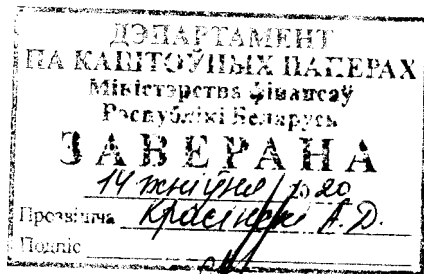 ДЭПАРТАМЕНТ
ПА КАШТОЎНЫХ ПАПЕРАХ
Міністэрства фінансаў
Рэспублікі Беларусь
ЗАВЕРАНА
14 жніўня 20
Прозвішча Красінскі А.Д.
Подпіс